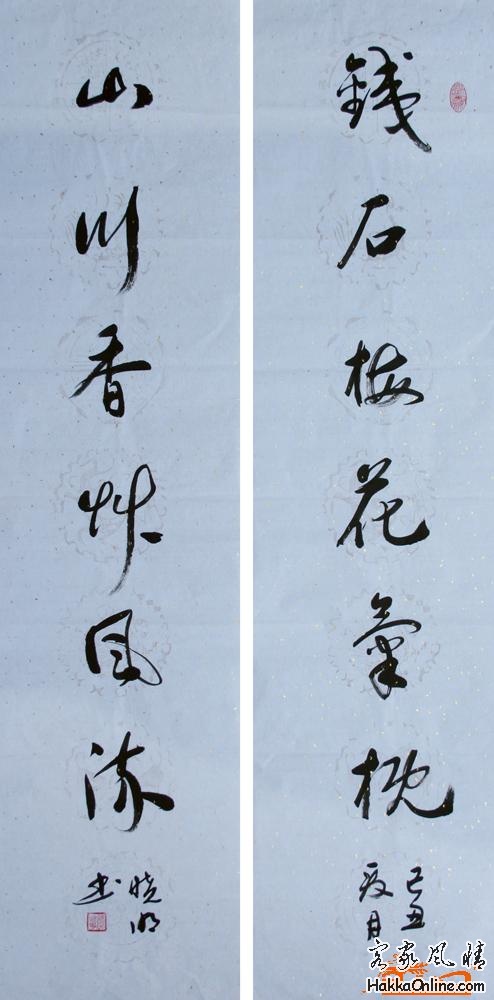 鐵石梅花氣概
己丑
夏月
山川香艸風流
曉明
书
客家風情
HakkaOnline.com